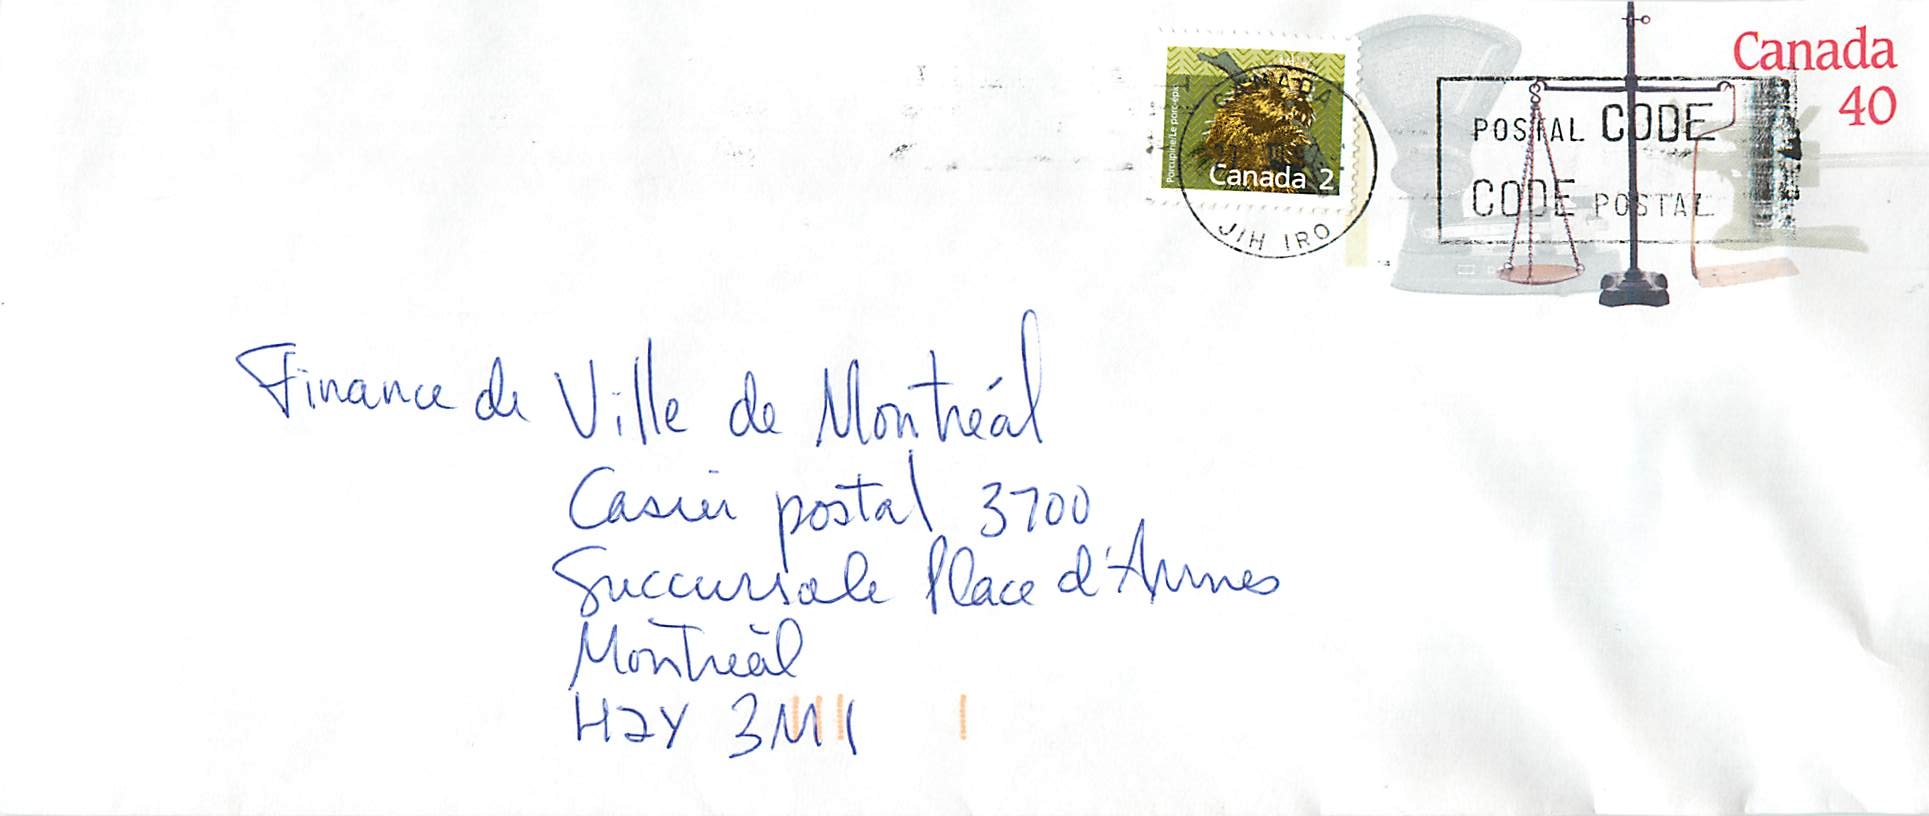 Canada
40
Porcupine/Le porc-épic
Canada 2
CANADA
J1H 1R0
POSTAL CODE
CODE POSTAL
Finance de Ville de Montréal
Casier postal 3700
Succursale Place d'Armes
Montréal
H2Y 3M1